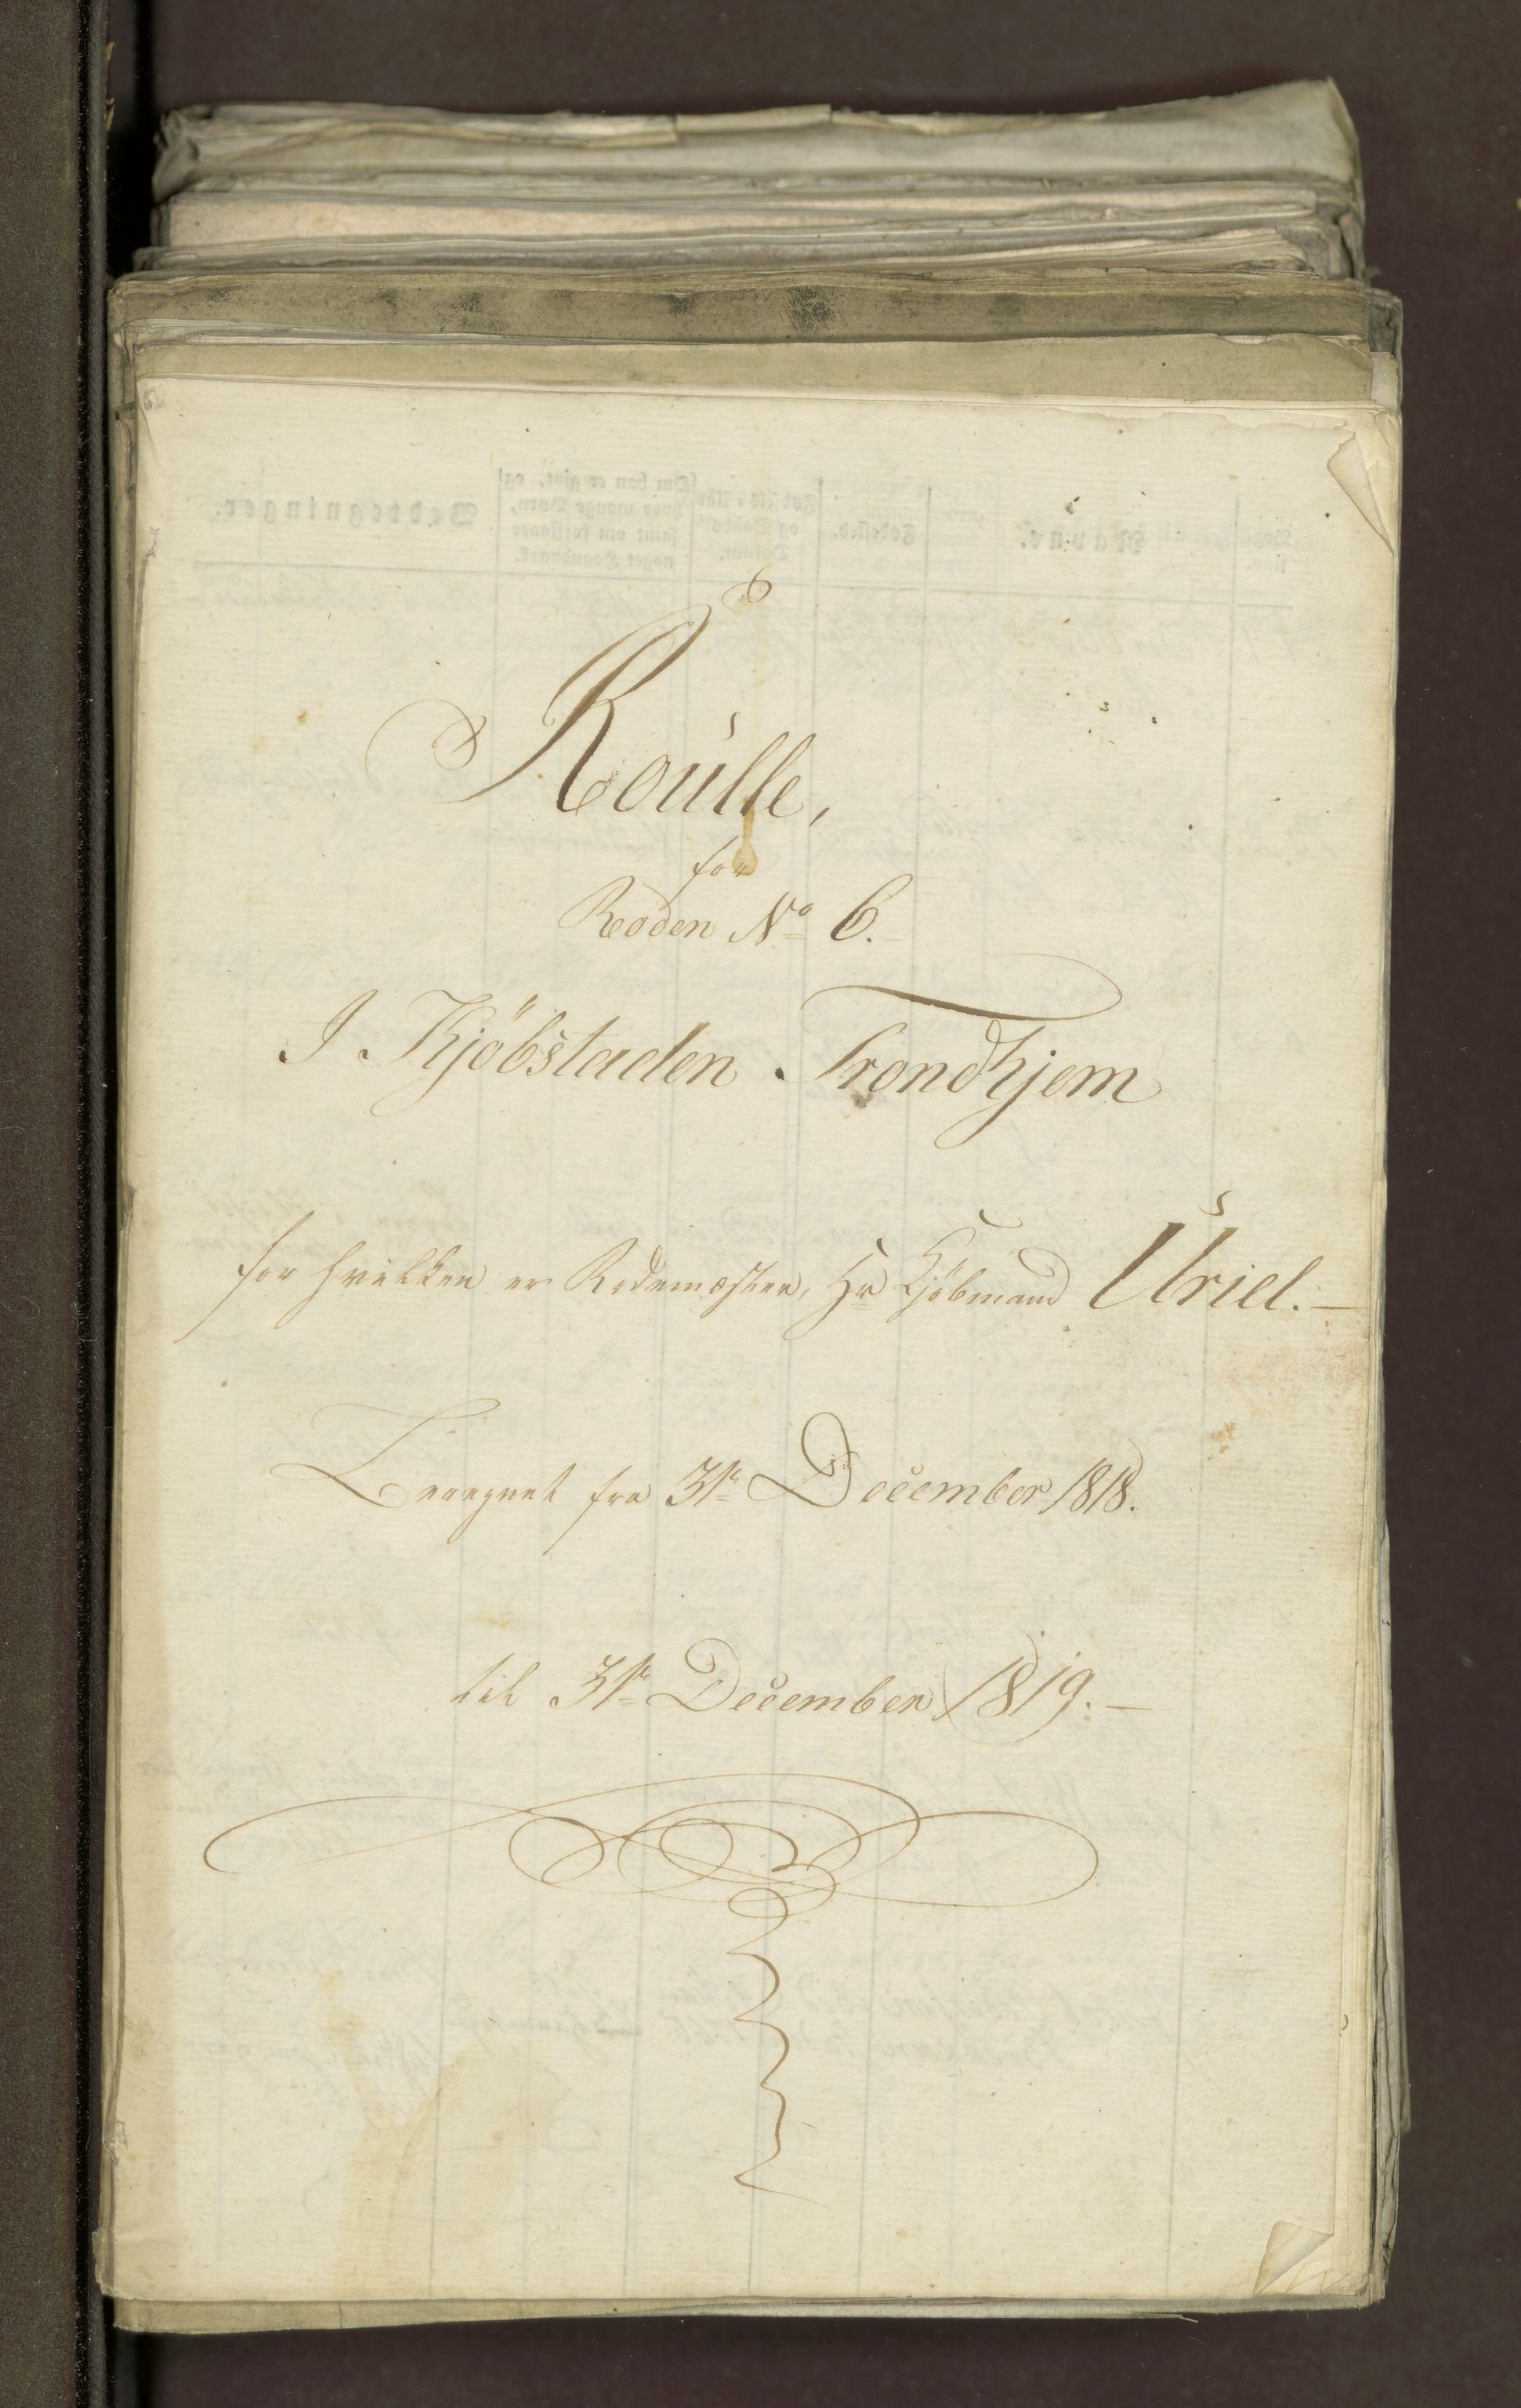 Roulle,
for
Roden No 6.
I Kjöbstaden Trondhjem
for hvilken er Rodemester, Hr Kjöbmand Uriel.—
Beregnet fra 31te December 1818.
til 31te December 1819.—